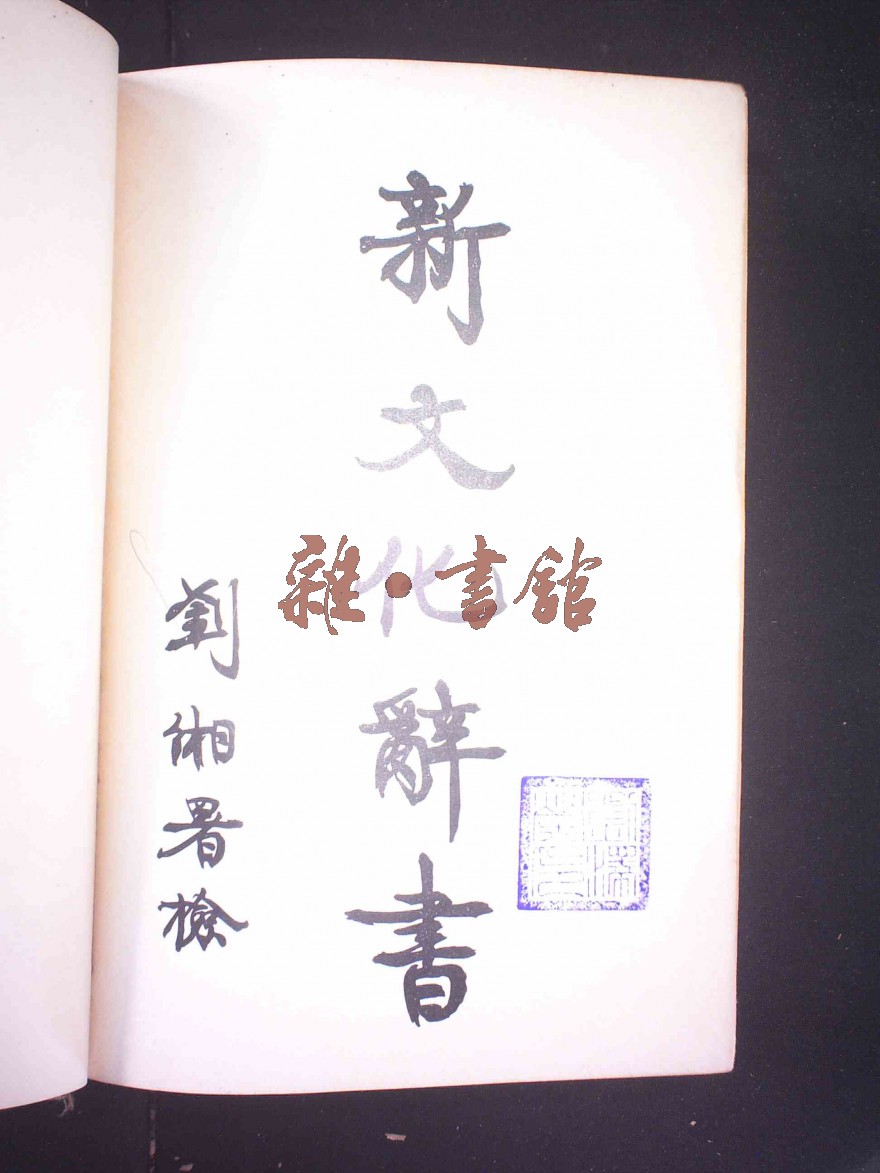 新文化辭書
劉緗署檢
雜·書館